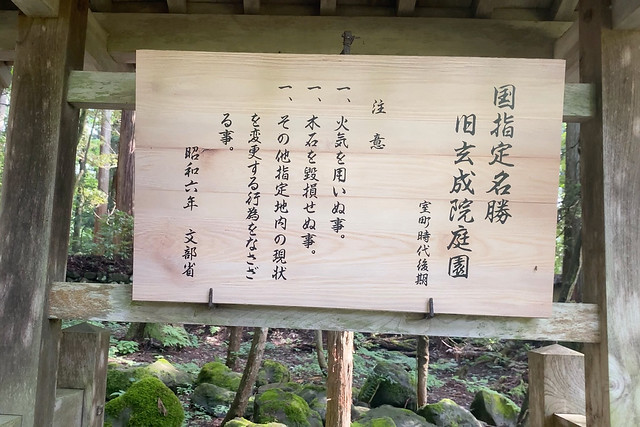 国指定名勝
旧玄成院庭園
室町時代後期
注意
一、火気を用いぬ事。
一、木石を毀損せぬ事。
一、その他指定地内の現状
を変更する行為をなさざ
る事。
昭和六年 文部省